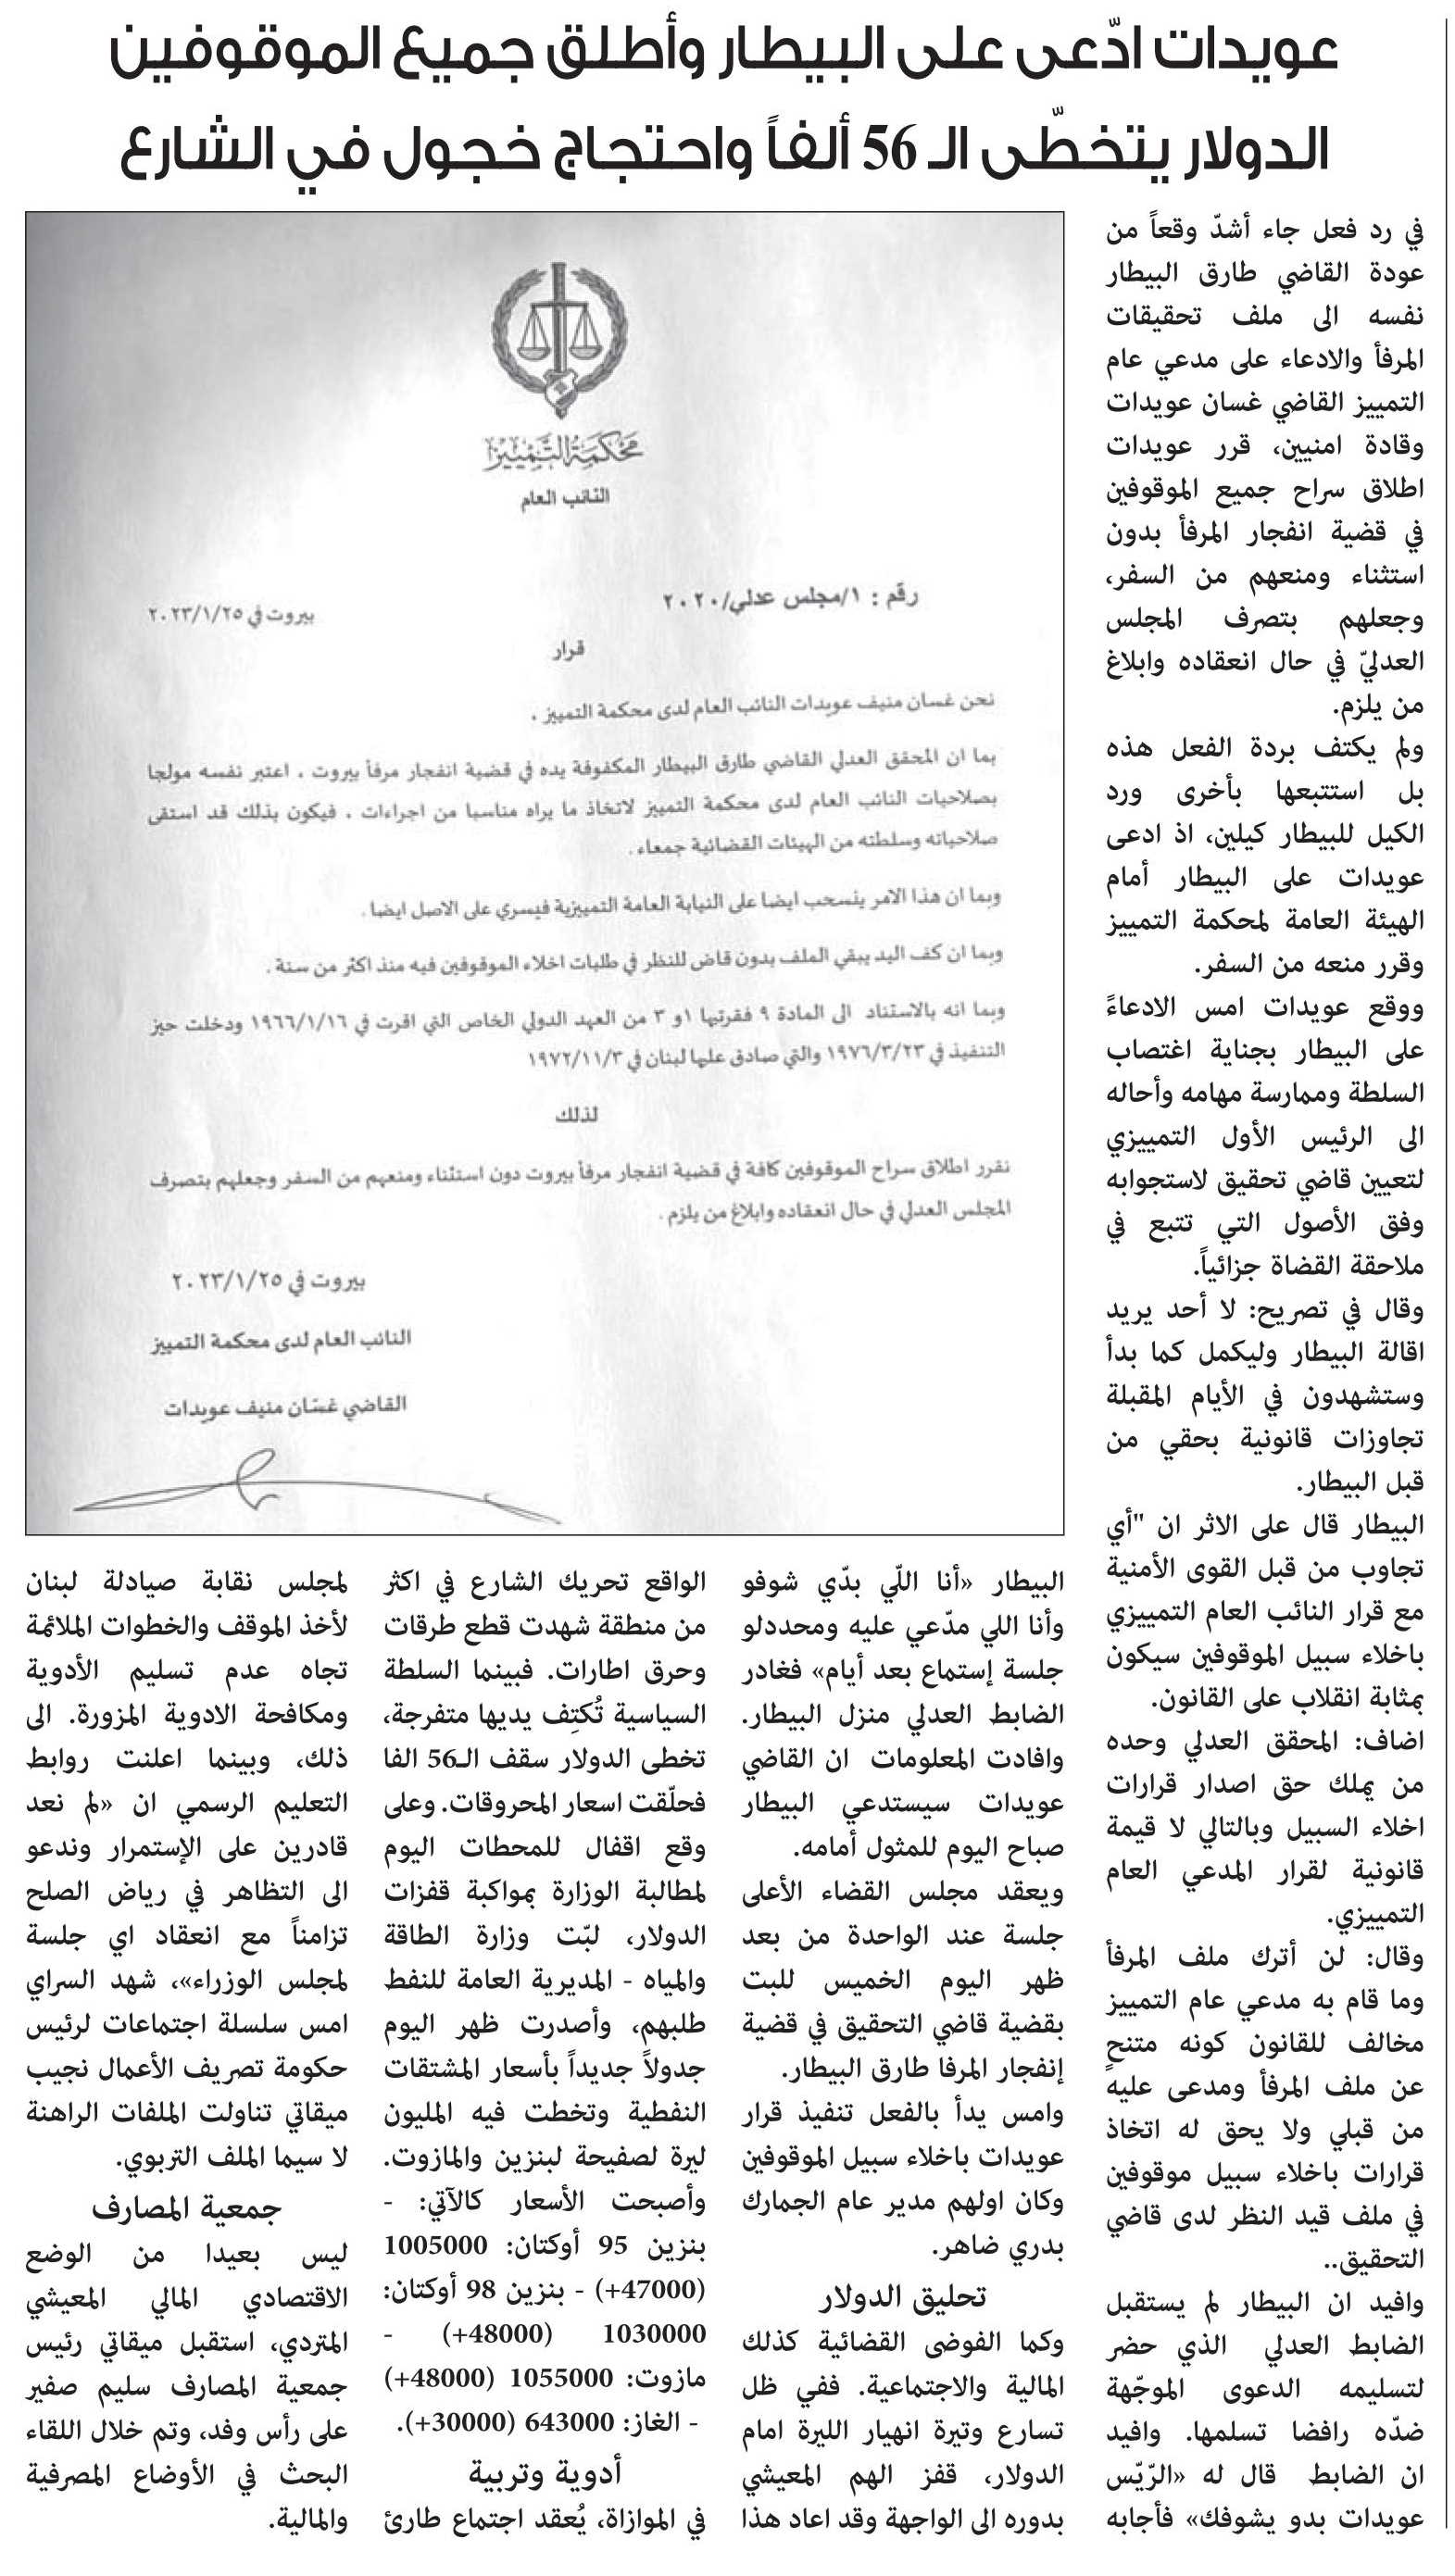 عويدات ادّعى على البيطار وأطلق جميع الموقوفين
الدولار يتخطّى الـ 56 ألفاً واحتجاج خجول في الشارع
في رد فعل جاء أشدّ وقعاً من
عودة القاضي طارق البيطار
نفسه الى ملف تحقيقات
المرفأ والادعاء على مدعي عام
التمييز القاضي غسان عويدات
وقادة امنيين، قرر عويدات
اطلاق سراح جميع الموقوفين
في قضية انفجار المرفأ بدون
استثناء ومنعهم من السفر،
وجعلهم بتصرف المجلس
العدليّ في حال انعقاده وابلاغ
من يلزم.
ولم يكتف بردة الفعل هذه
بل استتبعها بأخرى ورد
الكيل للبيطار كيلين، اذ ادعى
عويدات على البيطار أمام
الهيئة العامة لمحكمة التمييز
وقرر منعه من السفر.
ووقع عويدات امس الادعاءً
على البيطار بجناية اغتصاب
السلطة وممارسة مهامه وأحاله
الى الرئيس الأول التمييزي
لتعيين قاضي تحقيق لاستجوابه
وفق الأصول التي تتبع في
ملاحقة القضاة جزائياً.
وقال في تصريح: لا أحد يريد
اقالة البيطار وليكمل كما بدأ
وستشهدون في الأيام المقبلة
تجاوزات قانونية بحقي من
قبل البيطار.
البيطار قال على الاثر ان "أي
تجاوب من قبل القوى الأمنية
مع قرار النائب العام التمييزي
باخلاء سبيل الموقوفين سيكون
بمثابة انقلاب على القانون.
اضاف: المحقق العدلي وحده
من يملك حق اصدار قرارات
اخلاء السبيل وبالتالي لا قيمة
قانونية لقرار المدعي العام
التمييزي.
وقال: لن أترك ملف المرفأ
وما قام به مدعي عام التمييز
مخالف للقانون كونه متنحٍ
عن ملف المرفأ ومدعى عليه
من قبلي ولا يحق له اتخاذ
قرارات باخلاء سبيل موقوفين
في ملف قيد النظر لدى قاضي
التحقيق..
وافيد ان البيطار لم يستقبل
الضابط العدلي الذي حضر
لتسليمه الدعوى الموجّهة
ضدّه رافضا تسلمها. وافيد
ان الضابط قال له «الرّيّس
عويدات بدو يشوفك» فأجابه
محكمة التمييز
النائب العام
رقم : ١/مجلس عدلي/٢٠٢٠
بيروت في ٢٠٢٣/١/٢٥
قرار
نحن غسان منيف عويدات النائب العام لدى محكمة التمييز ،
بما ان المحقق العدلي القاضي طارق البيطار المكفوفة يده في قضية انفجار مرفأ بيروت ، اعتبر نفسه مولجا
بصلاحيات النائب العام لدى محكمة التمييز لاتخاذ ما يراه مناسبا من اجراءات ، فيكون بذلك قد استقى
صلاحياته وسلطته من الهيئات القضائية جمعاء .
وبما ان هذا الامر ينسحب ايضا على النيابة العامة التمييزية فيسري على الاصل ايضا .
وبما ان كف اليد يبقي الملف بدون قاض للنظر في طلبات اخلاء الموقوفين فيه منذ اكثر من سنة .
وبما انه بالاستناد الى المادة ٩ فقرتيها ١و ٣ من العهد الدولي الخاص التي اقرت في ١٩٦٦/١/١٦ ودخلت حيز
التنفيذ في ١٩٧٦/٣/٢٣ والتي صادق عليها لبنان في ١٩٧٢/١١/٣
لذلك
نقرر اطلاق سراح الموقوفين كافة في قضية انفجار مرفأ بيروت دون استثناء ومنعهم من السفر وجعلهم بتصرف
المجلس العدلي في حال انعقاده وابلاغ من يلزم .
بيروت في ٢٠٢٣/١/٢٥
النائب العام لدى محكمة التمييز
القاضي غسّان منيف عويدات
البيطار «أنا اللّي بدّي شوفو
وأنا اللي مدّعي عليه ومحددلو
جلسة إستماع بعد أيام» فغادر
الضابط العدلي منزل البيطار.
وافادت المعلومات ان القاضي
عويدات سيستدعي البيطار
صباح اليوم للمثول أمامه.
ويعقد مجلس القضاء الأعلى
جلسة عند الواحدة من بعد
ظهر اليوم الخميس للبت
بقضية قاضي التحقيق في قضية
إنفجار المرفا طارق البيطار.
وامس يدأ بالفعل تنفيذ قرار
عويدات باخلاء سبيل الموقوفين
وكان اولهم مدير عام الجمارك
بدري ضاهر.
تحليق الدولار
وكما الفوضى القضائية كذلك
المالية والاجتماعية. ففي ظل
تسارع وتيرة انهيار الليرة امام
الدولار، قفز الهم المعيشي
بدوره الى الواجهة وقد اعاد هذا
الواقع تحريك الشارع في اكثر
من منطقة شهدت قطع طرقات
وحرق اطارات. فبينما السلطة
السياسية تُكتِف يديها متفرجة،
تخطى الدولار سقف الـ56 الفا
فحلّقت اسعار المحروقات. وعلى
وقع اقفال للمحطات اليوم
لمطالبة الوزارة بمواكبة قفزات
الدولار، لبّت وزارة الطاقة
والمياه - المديرية العامة للنفط
طلبهم، وأصدرت ظهر اليوم
جدولاً جديداً بأسعار المشتقات
النفطية وتخطت فيه المليون
ليرة لصفيحة لبنزين والمازوت.
وأصبحت الأسعار كالآتي: -
بنزين 95 أوكتان: 1005000
(+47000) - بنزين 98 أوكتان:
1030000 (+48000) -
مازوت: 1055000 (+48000)
- الغاز: 643000 (+30000).
أدوية وتربية
في الموازاة، يُعقد اجتماع طارئ
لمجلس نقابة صيادلة لبنان
لأخذ الموقف والخطوات الملائمة
تجاه عدم تسليم الأدوية
ومكافحة الادوية المزورة. الى
ذلك، وبينما اعلنت روابط
التعليم الرسمي ان «لم نعد
قادرين على الإستمرار وندعو
الى التظاهر في رياض الصلح
تزامناً مع انعقاد اي جلسة
لمجلس الوزراء»، شهد السراي
امس سلسلة اجتماعات لرئيس
حكومة تصريف الأعمال نجيب
ميقاتي تناولت الملفات الراهنة
لا سيما الملف التربوي.
جمعية المصارف
ليس بعيدا من الوضع
الاقتصادي المالي المعيشي
المتردي، استقبل ميقاتي رئيس
جمعية المصارف سليم صفير
على رأس وفد، وتم خلال اللقاء
البحث في الأوضاع المصرفية
والمالية.